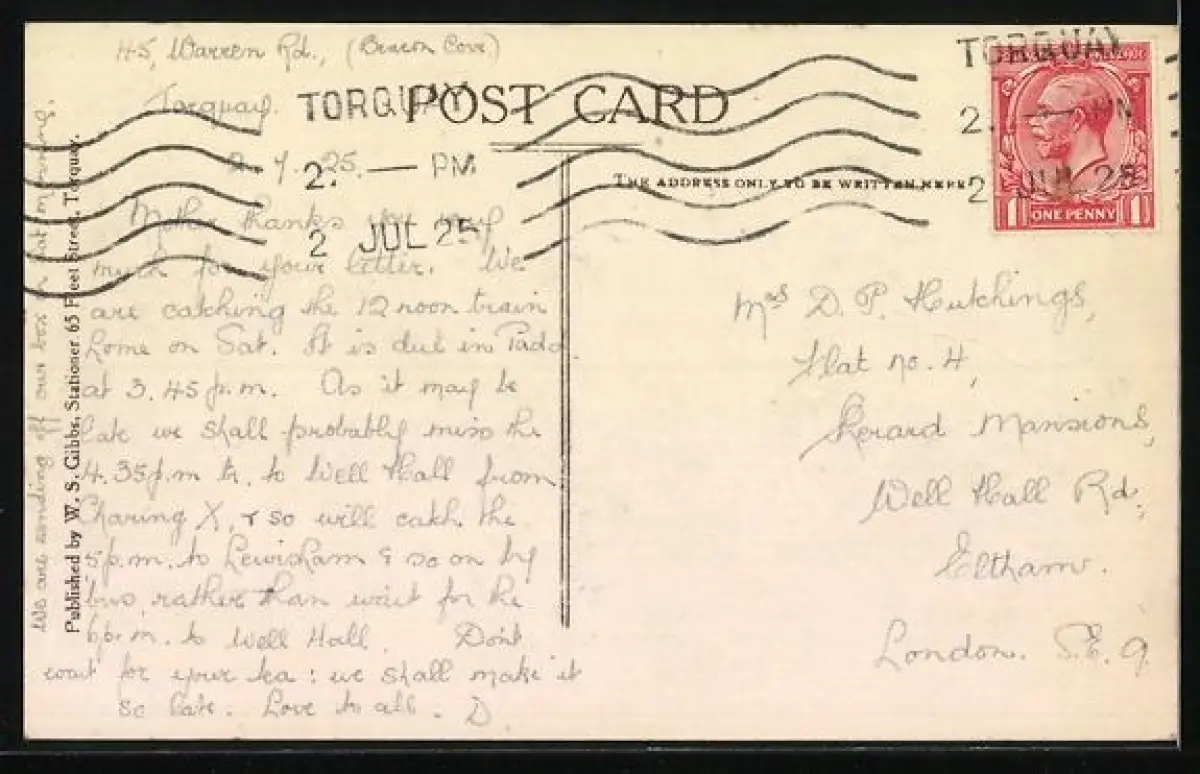 45, Warren Rd., (Beacon Cove)
Torquay.
2. 7. 25.
Mother thanks you very
much for your letter. We
are catching the 12 noon train
home on Sat. It is due in Padd.
at 3.45 p.m. As it may be
late we shall probably miss the
4.35 p.m. tr. to Well Hall from
Charing X, & so will catch the
5 p.m. to Lewisham & so on by
bus, rather than wait for the
6 p.m. to Well Hall. Don't
wait for your tea: we shall make it
so late. Love to all. D.
We are sending off our box on Sat. morning.
Published by W. S. Gibbs, Stationer 65 Fleet Street, Torquay.
POST CARD
THE ADDRESS ONLY TO BE WRITTEN HERE
TORQUAY
2. — PM
2 JUL 25
TORQUAY
2. — PM
2 JUL 25
POSTAGE REVENUE
1 ONE PENNY 1
Mrs D. P. Hutchings,
Flat no. 4,
Mansions,
Well Hall Rd.,
Eltham.
London. S.E. 9.